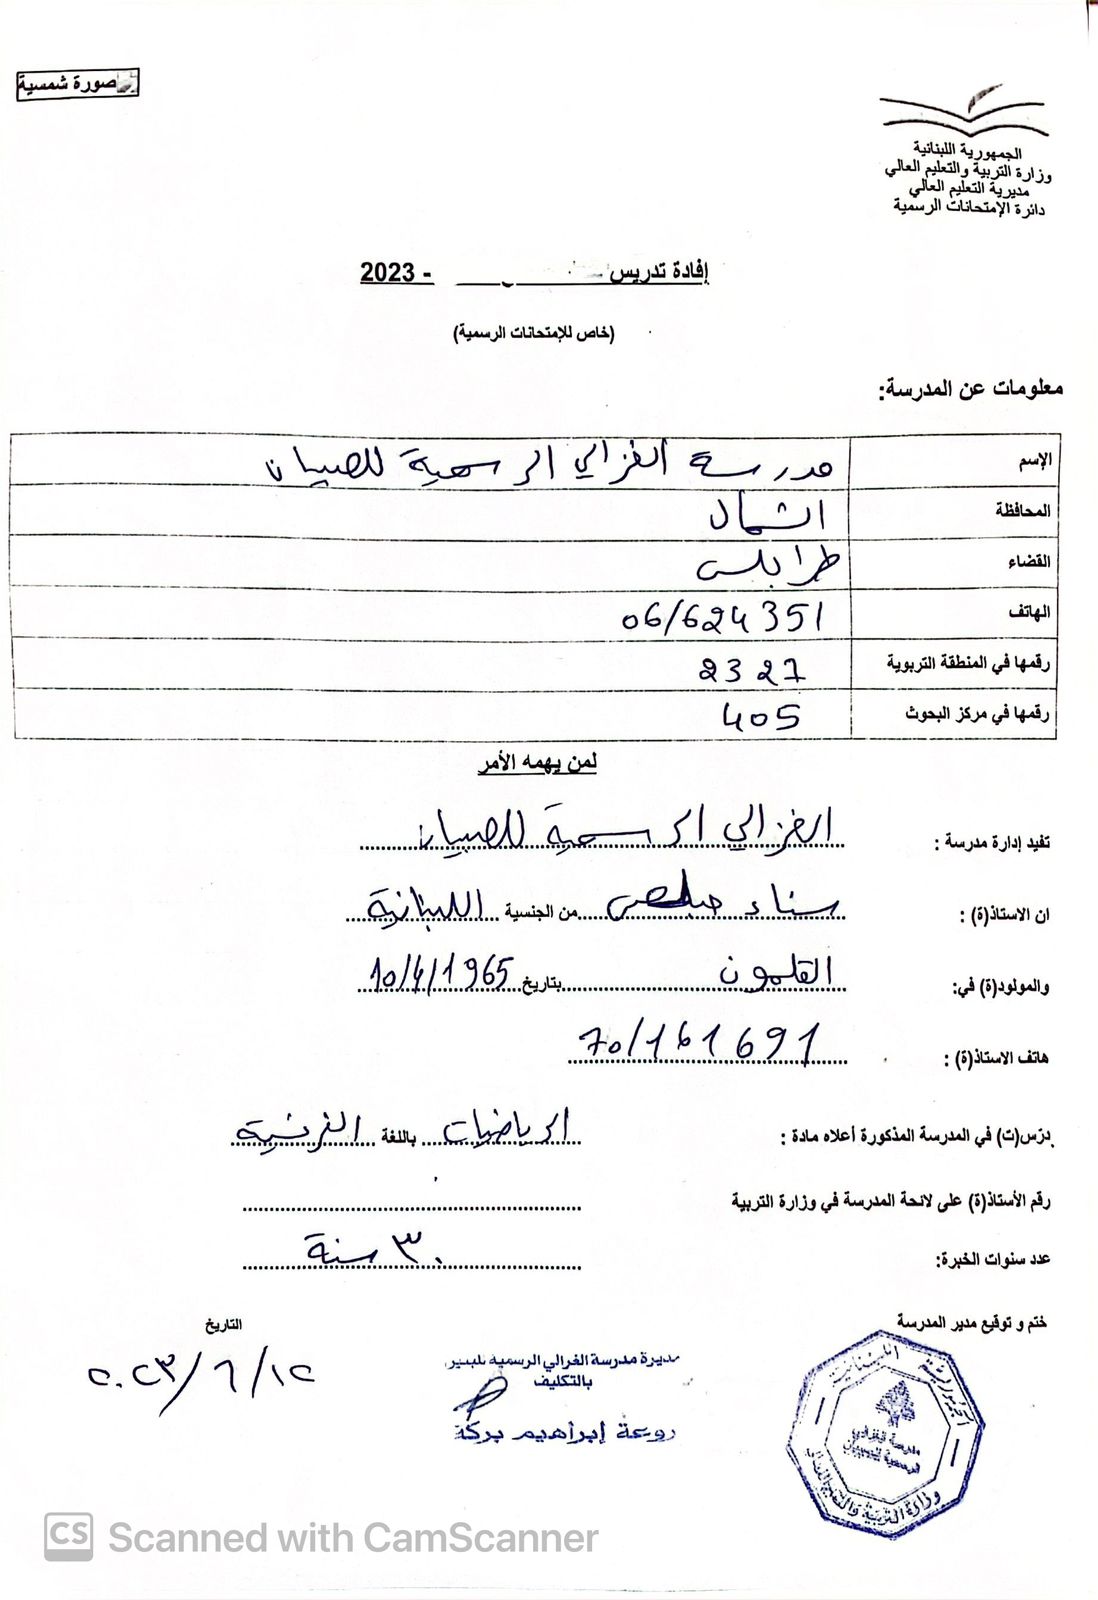 صورة شمسية
الجمهورية اللبنانية
وزارة التربية والتعليم العالي
مديرية التعليم العالي
دائرة الإمتحانات الرسمية
إفادة تدريس - 2023
(خاص للإمتحانات الرسمية)
معلومات عن المدرسة:
الإسم مدرسة الغزالي الرسمية للصبيان
المحافظة الشمال
القضاء طرابلس
الهاتف 06/624351
رقمها في المنطقة التربوية 2327
رقمها في مركز البحوث 405
لمن يهمه الأمر
تفيد إدارة مدرسة : الغزالي الرسمية للصبيان
ان الاستاذ(ة) : سناء من الجنسية اللبنانية
والمولود(ة) في: القلمون بتاريخ 10/4/1965
هاتف الاستاذ(ة) : 70/161691
درّس(ت) في المدرسة المذكورة أعلاه مادة : الرياضيات باللغة الفرنسية
رقم الأستاذ(ة) على لائحة المدرسة في وزارة التربية
عدد سنوات الخبرة: ٣٠ سنة
ختم و توقيع مدير المدرسة
التاريخ
٢٠٢٣/٦/١٢
مديرة مدرسة الغزالي الرسمية
بالتكليف
روعة إبراهيم بركة
الجمهورية اللبنانية
مدرسة الغزالي
الرسمية للصبيان
وزارة التربية والتعليم العالي
CS Scanned with CamScanner